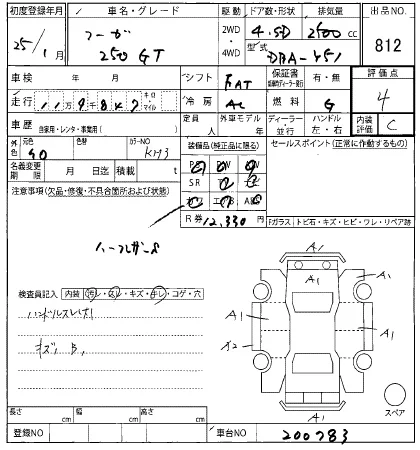 初度登録年月 車名・グレード 駆動 ドア数・形状 排気量 出品NO.
25年/1月 フーガ 2WD・4WD 4.5D 2500cc 812
250GT 型式 DBA-Y51
車検 年 月 シフト FAT 保証書 有・無 評価点
走行 キロ マイル 冷房 AC 燃料 G 4
車歴 自家用・レンタ・事業用( ) 定員 人 外車モデル 年 ディーラー・並行 ハンドル 左・右 内装評価 C
外色 元色 色替 カラーNO 装備品(純正品に限る) セールスポイント(正常に作動するもの)
KH3
名義変更期限 月 日迄 積載 t SR
注意事項(欠品・修復・不具合箇所および状態)
R券 12,330円 Fガラス・トビ石・キズ・ヒビ・ワレ・リペア跡
A1
A1
A1
検査員記入 内装 キズ・キレ・コゲ・穴
A1
A1
ハンドルスレ
キズ B1
A1
スペア
長さ cm 幅 cm 高さ cm
登録NO 車台NO 200783